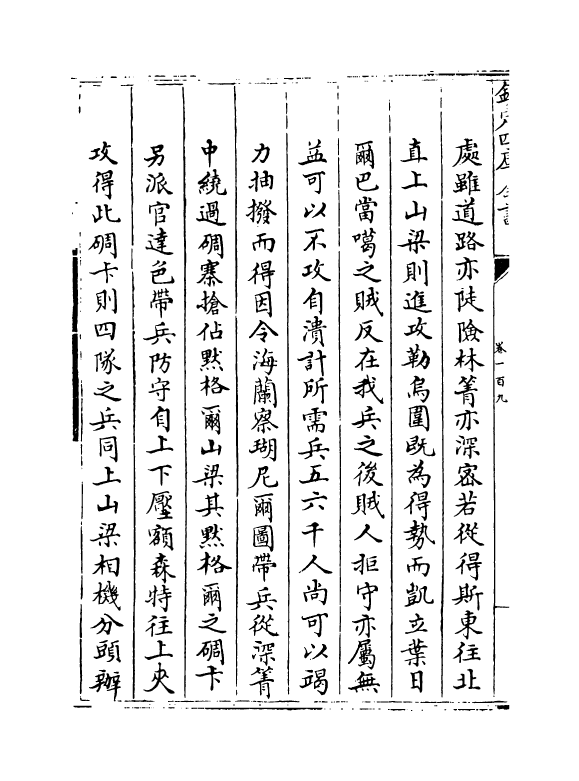 欽定四庫全書
卷一百九
處雖道路亦陡險林箐亦深密若從得斯東往北
直上山梁則進攻勒烏圍既為得勢而凱立葉日
爾巴當噶之賊反在我兵之後賊人拒守亦屬無
益可以不攻自潰計所需兵五六千人尚可以竭
力抽撥而得因令海蘭察瑚尼爾圖帶兵從深箐
中繞過碉寨搶佔黙格爾山梁其黙格爾之碉卡
另派官達色帶兵防守自上下壓額森特往上夾
攻得此碉卡則四隊之兵同上山梁相機分頭辦